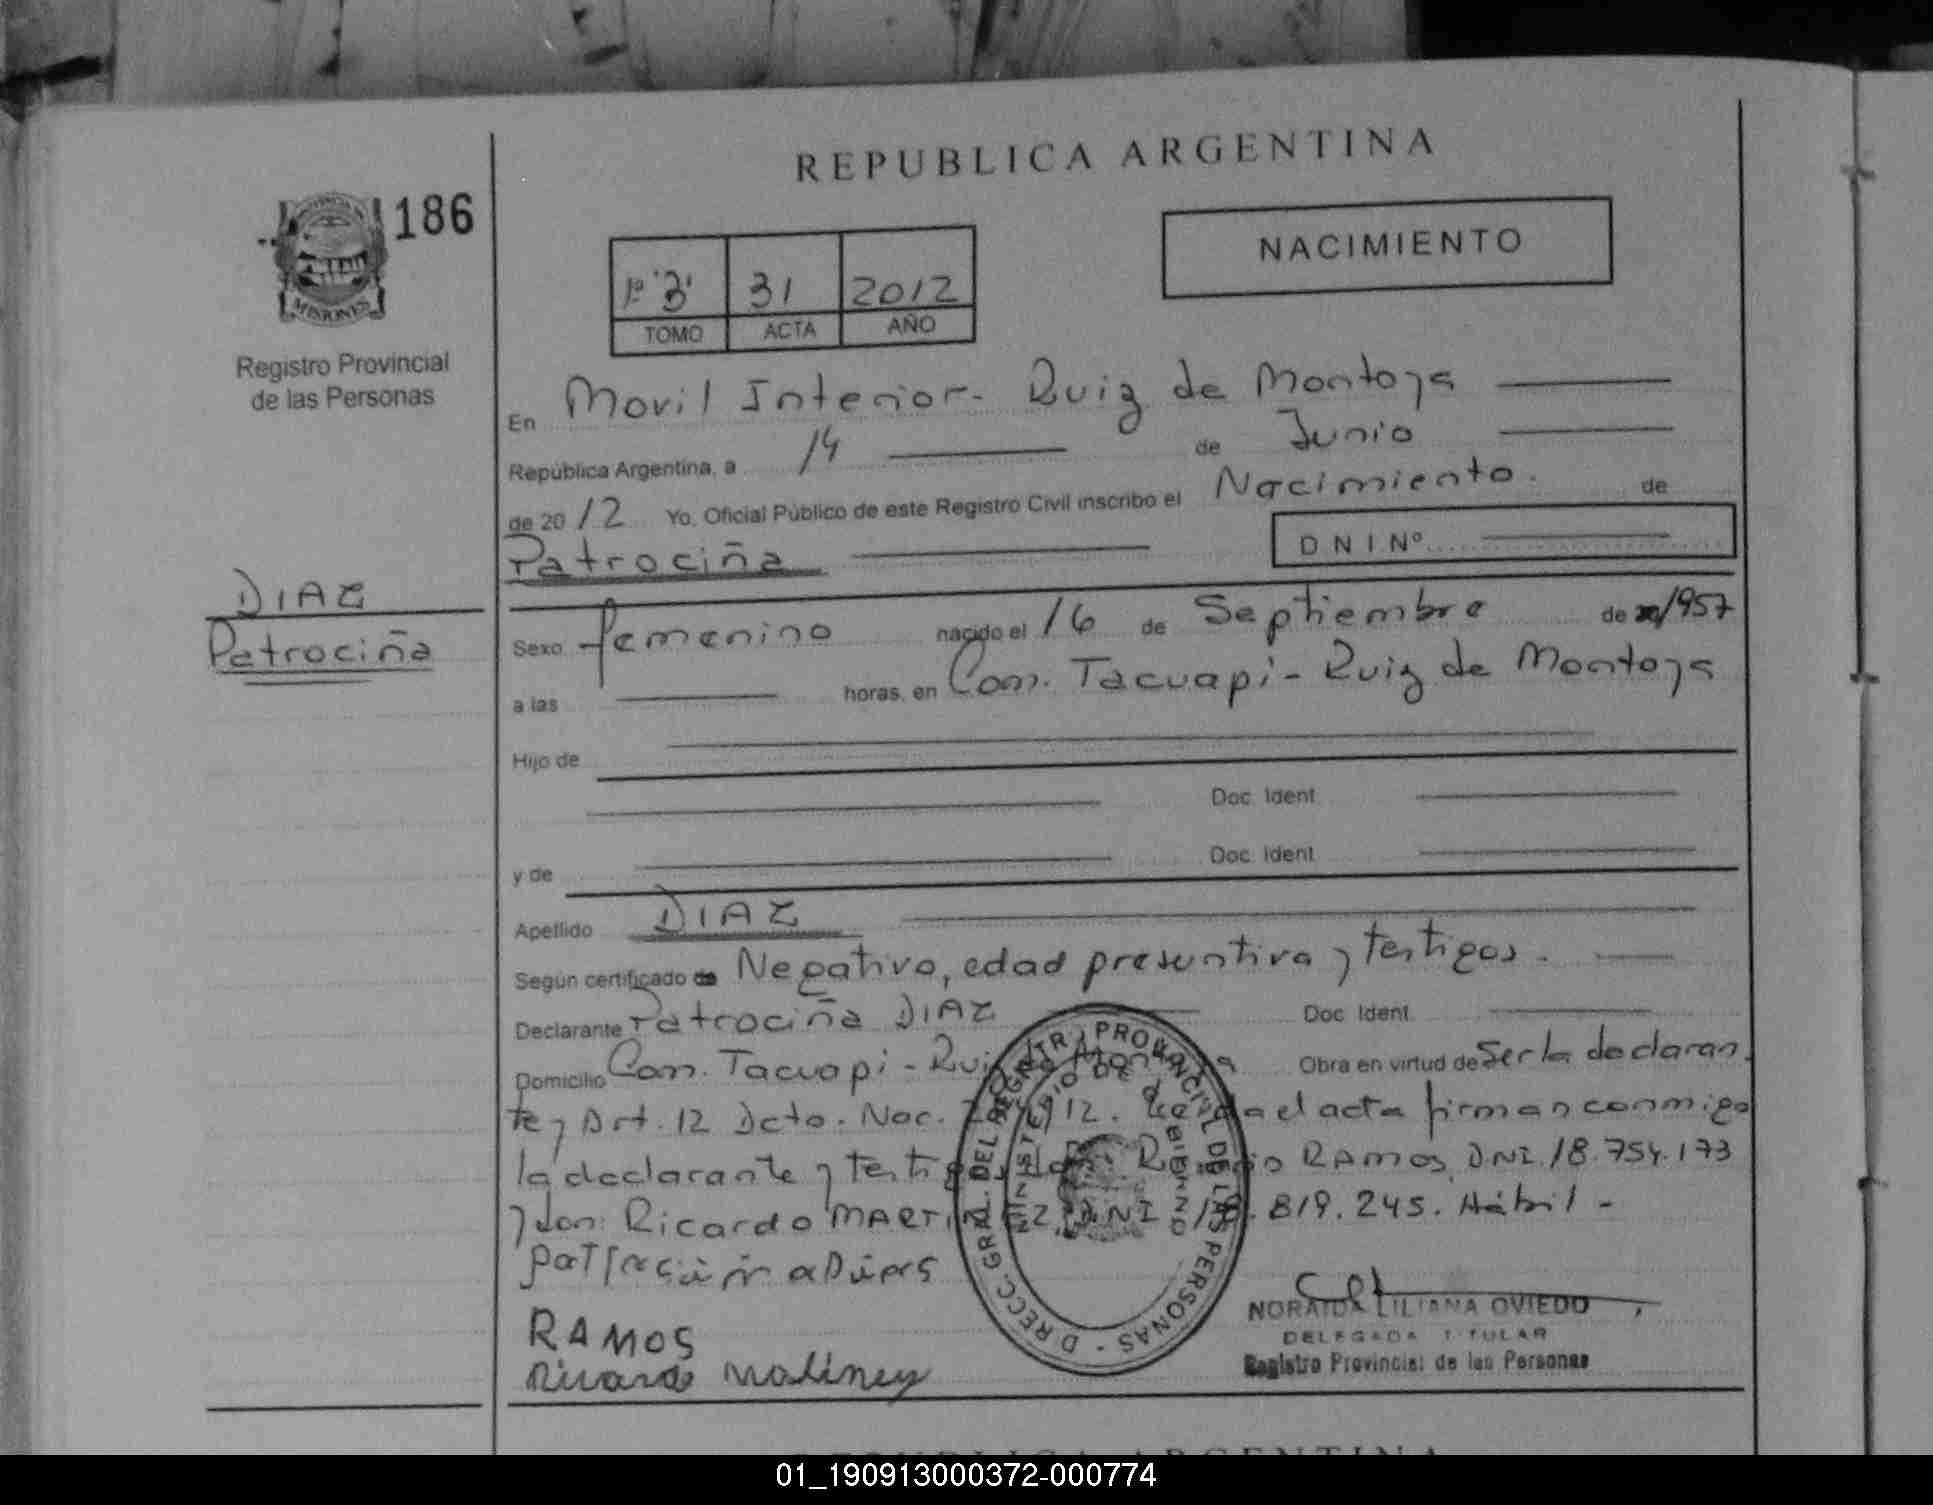 REPUBLICA ARGENTINA
186
NACIMIENTO
1º "3" 31 2012
TOMO ACTA AÑO
MISIONES
Registro Provincial
de las Personas
En Movil Interior - Ruiz de Montoya
República Argentina, a 14 de Junio
de 2012 Yo, Oficial Público de este Registro Civil inscribo el Nacimiento. de
Patrociña
D N I Nº
DIAZ
Patrociña
Sexo femenino nacido el 16 de Septiembre de 1957
a las horas, en Com. Tacuapi - Ruiz de Montoya
Hijo de
Doc. Ident.
y de Doc. Ident.
Apellido DIAZ
Según certificado de Negativo, edad presuntiva y testigos.
Declarante Patrociña DIAZ Doc. Ident.
Domicilio Com. Tacuapi - Ruiz de Montoya Obra en virtud de Ser la declaran
te y Art. 12 Dcto. Nac. 12. el acta firman conmigo
la declarante y RAMOS, DNI. 18.754.173
y don: Ricardo MARTINEZ DNI 819.245. Hábil -
DIRECC. GRAL. DEL REGISTRO PROVINCIAL DE LAS PERSONAS
MINISTERIO DE GOBIERNO
RAMOS
NORAIDA LILIANA OVIEDO
DELEGADA TITULAR
Registro Provincial de las Personas
REPUBLICA ARGENTINA
01_190913000372-000774